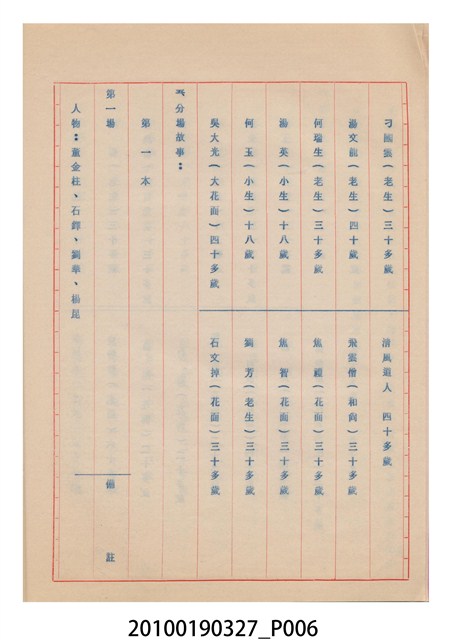 刁國雲(老生)三十多歲 清風道人 四十多歲
湯文龍(老生)四十歲 飛雲僧(和尚)三十多歲
何瑞生(老生)三十多歲 焦禮(花面)三十多歲
湯英(小生)十八歲 焦智(花面)三十多歲
何玉(小生)十八歲 劉芳(老生)三十多歲
吳大光(大花面)四十多歲 石文掉(花面)三十多歲
分場故事：
第一本
第一場 備註
人物：董金柱、石鐸、劉華、楊是
20100190327_P006